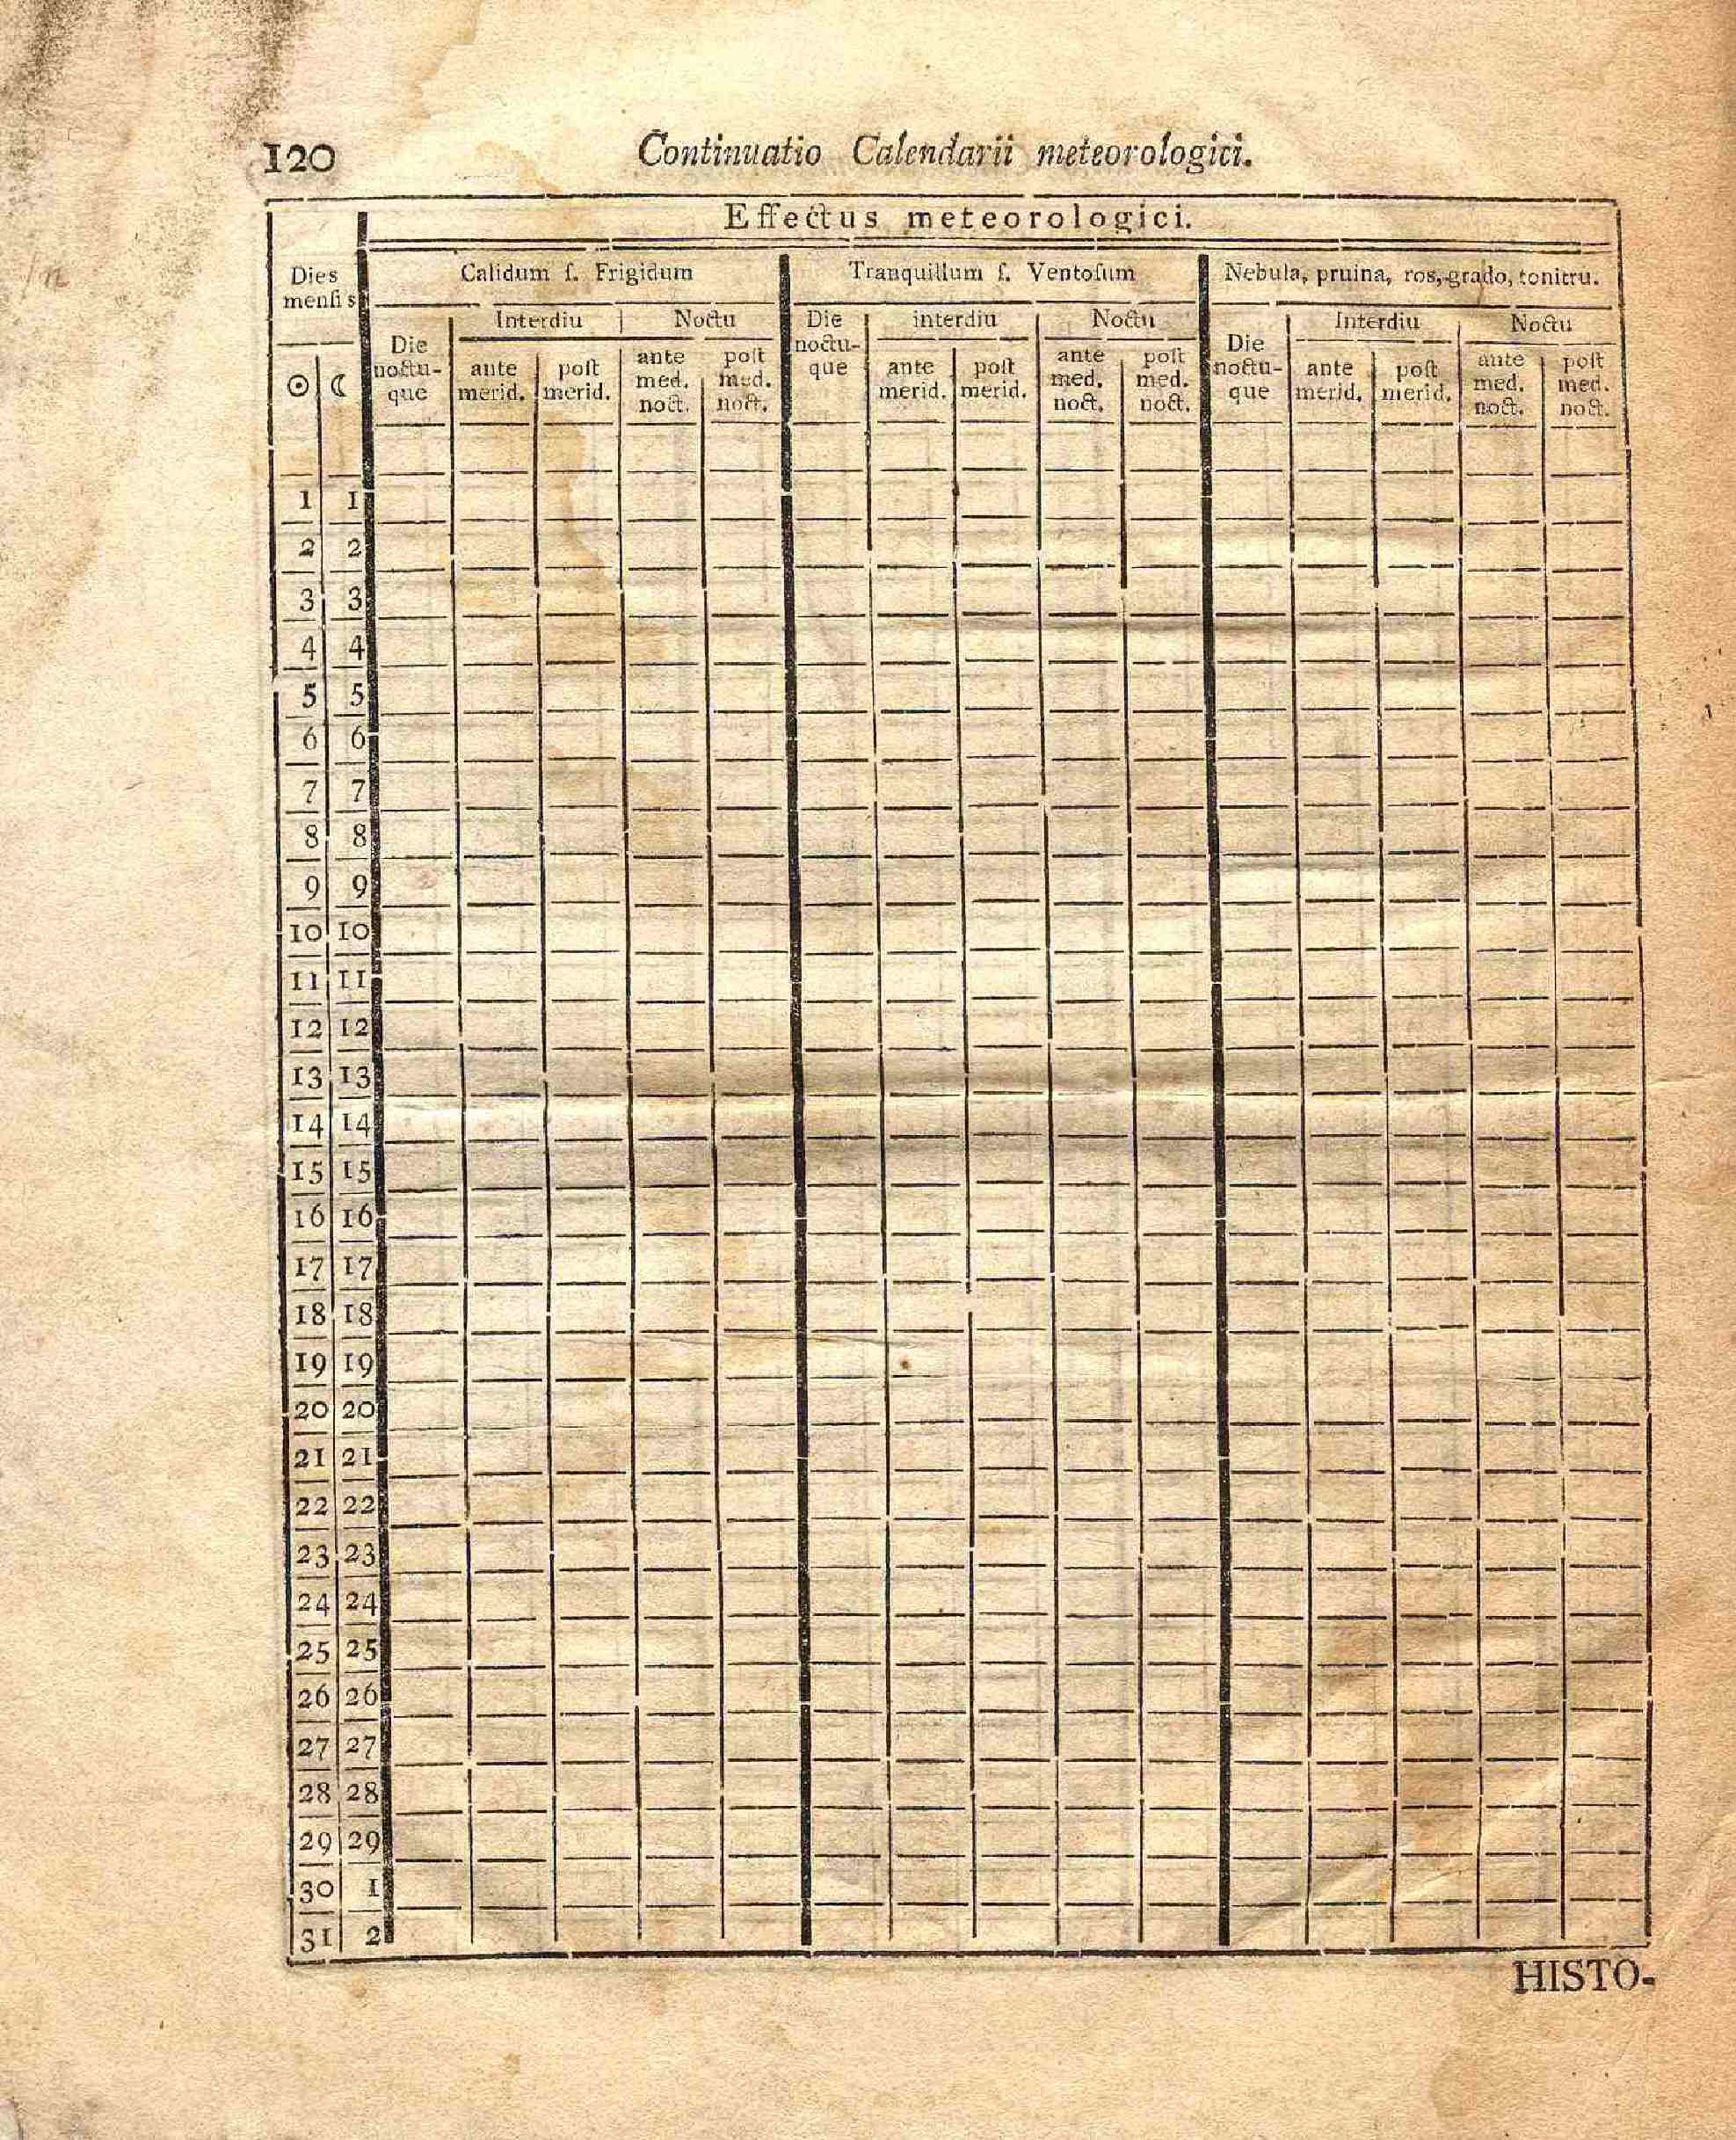 120 Continuatio Calendarii meteorologici.
Effectus meteorologici.
Dies
menſis
Calidum ſ. Frigidum
Tranquillum ſ. Ventoſum
Nebula, pruina, ros, grado, tonitru.
☉ ☾
Die
noctu-
que
Interdiu
Noctu
ante
merid.
poſt
merid.
ante
med.
noct.
poſt
med.
noct.
Die
noctu-
que
interdiu
Noctu
ante
merid.
poſt
merid.
ante
med.
noct.
poſt
med.
noct.
Die
noctu-
que
Interdiu
Noctu
ante
merid.
poſt
merid.
ante
med.
noct.
poſt
med.
noct.
1 1
2 2
3 3
4 4
5 5
6 6
7 7
8 8
9 9
10 10
11 11
12 12
13 13
14 14
15 15
16 16
17 17
18 18
19 19
20 20
21 21
22 22
23 23
24 24
25 25
26 26
27 27
28 28
29 29
30 1
31 2
HISTO-